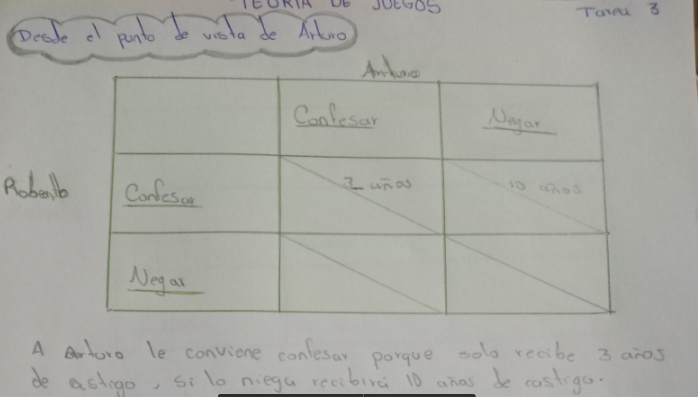 TEORIA DE JUEGOS
Tarea 3
Desde el punto de vista de Arturo
Arturo
Confesar Negar
Roberto
Confesar 3 años 10 años
Negar
A Arturo le conviene confesar porque solo recibe 3 años
de castigo, si lo niega recibirá 10 años de castigo.